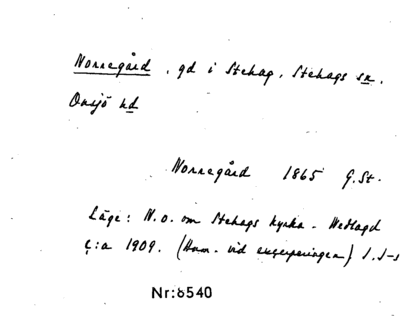 Norregård, gd i Stehag, Stehags sn,
Onsjö hd
Norregård 1865 G.St.
Läge: N.o. om Stehags kyrka. Nedlagd
c:a 1909. (Ham. vid excerperingen) I.J-s
Nr:8540